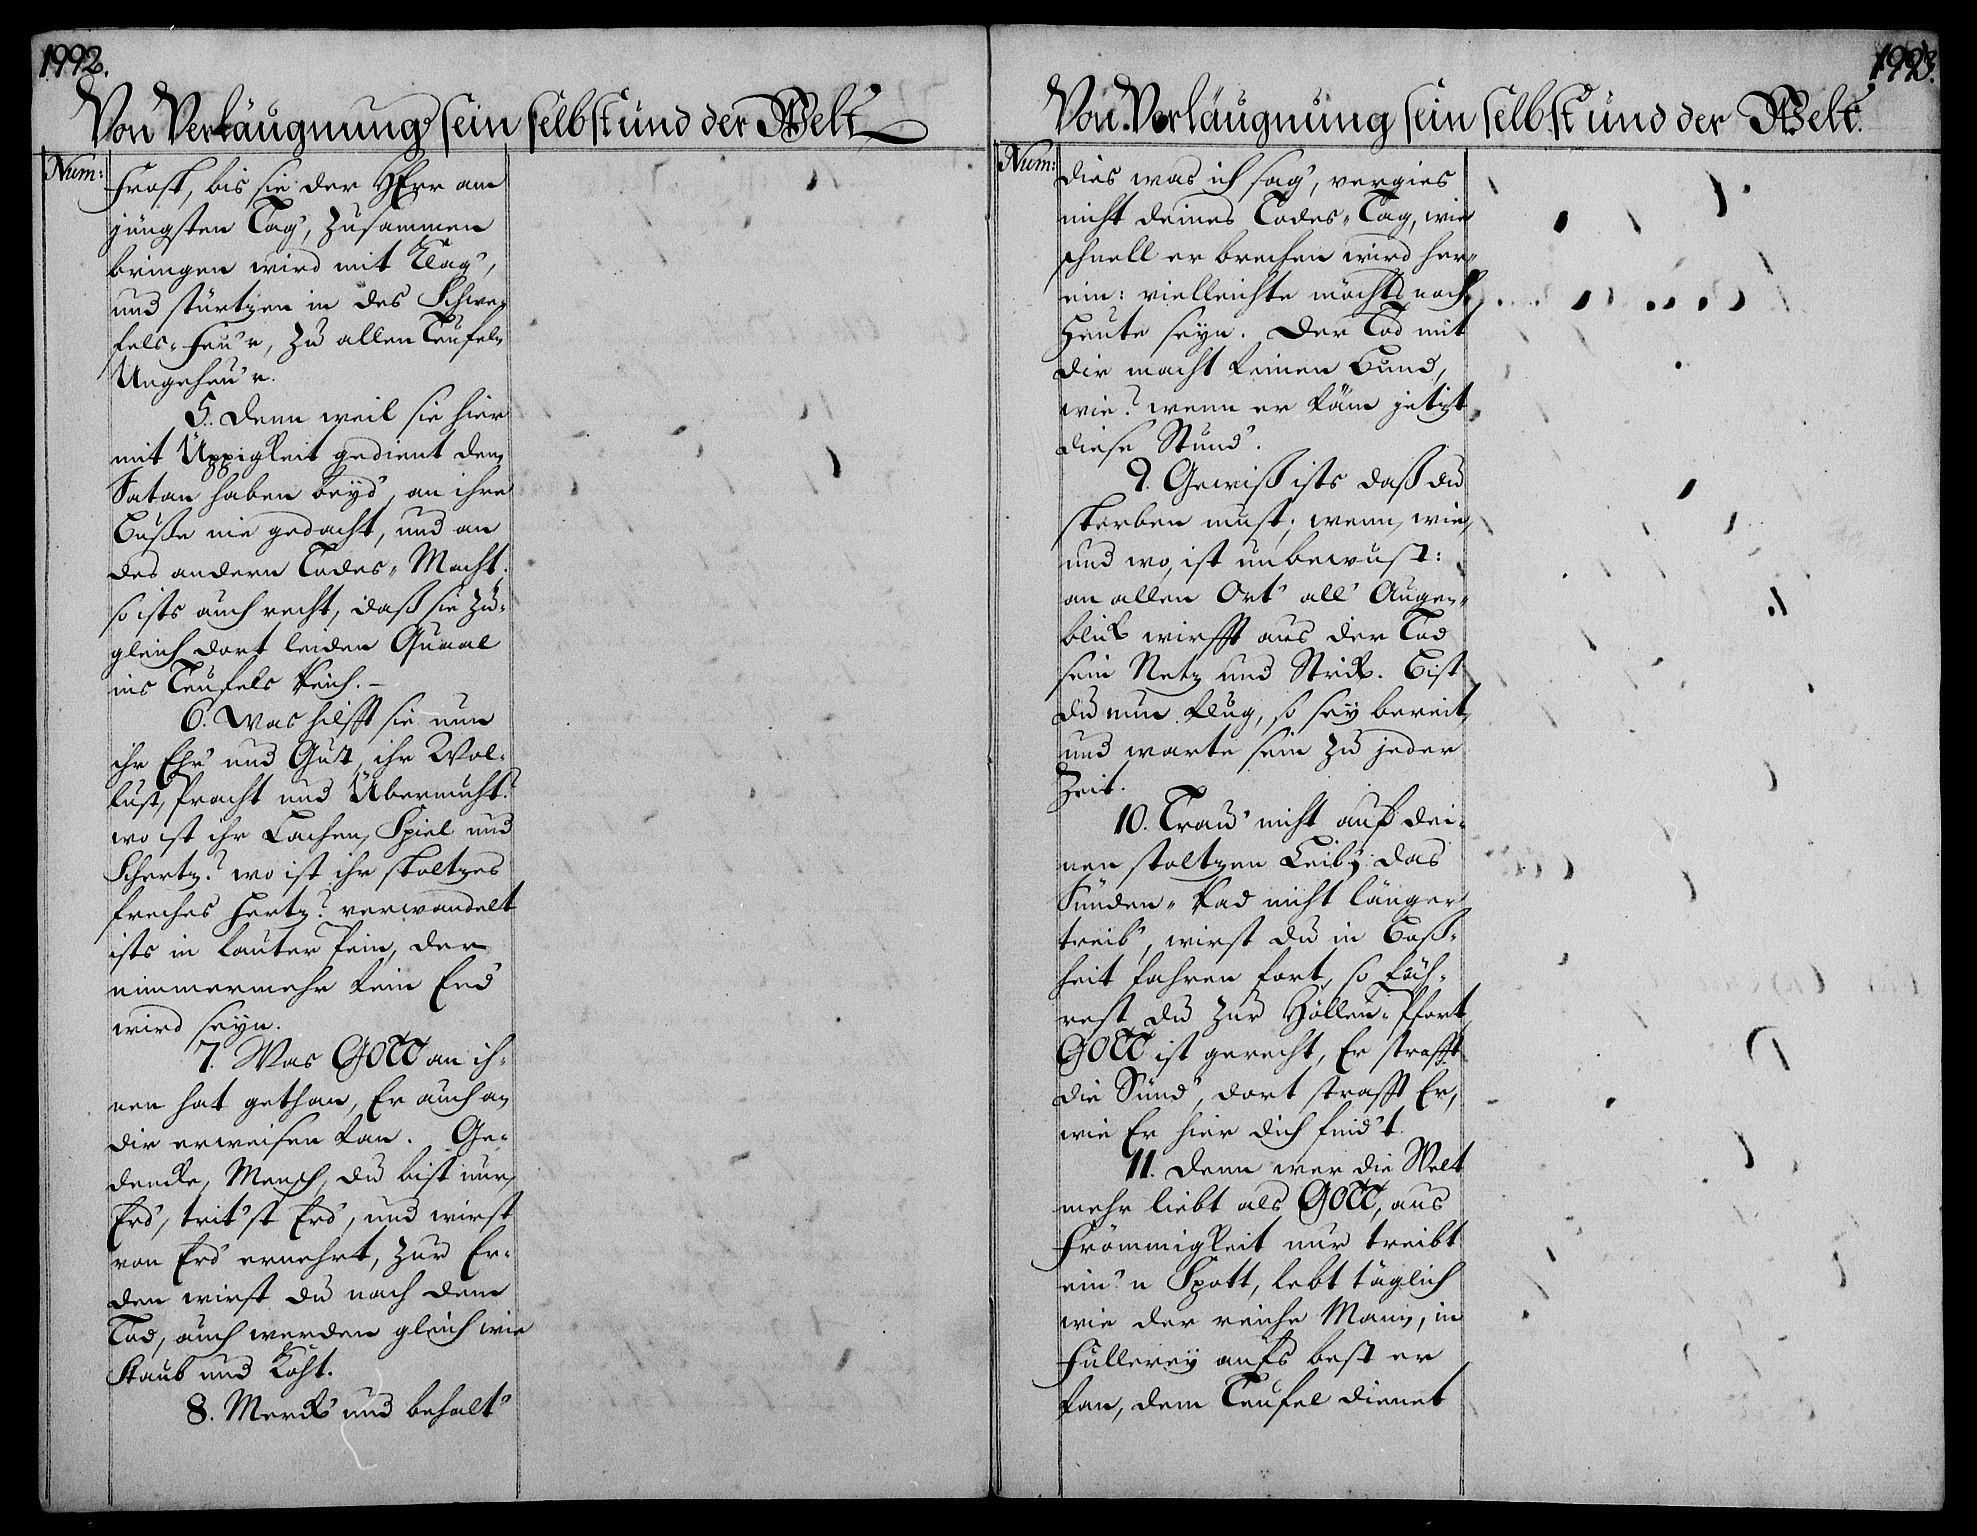 1992.
Von Verläugnung sein selbst und der Welt
Num:
Frost, bis sie der HErr am
jüngsten Tag', zusammen
bringen wird mit Klag',
und stürtzen in des Schwe¬
fels-Feu'r, zu allen Teufels
Ungeheu'r.
5. Denn weil sie hier
mit Üppigkeit gedient dem
Satan haben beyd', an ihre
Buße nie gedacht, und an
des andern Todes-Macht.
so ists auch recht, daß sie zu-
gleich dort leiden Quaal
ins Teufels Reich. -
6. Was hilfft sie nun
ihr Ehr' und Gut, ihr Wol-
lust, Pracht und Übermuht?
wo ist ihr Lachen, Spiel und
Schertz? wo ist ihr stoltzes
freches Hertz? verwandelt
ists in lauter Pein, der
nimmermehr kein End'
wird seyn.
7. Was GOTT an ih-
nen hat gethan, Er auch an
dir erweisen kan. Ge-
dencke, Mensch, du bist nur
Erd', trit'st Erd', und wirst
von Erd' ernehrt, zur Er-
den wirst du nach dem
Tod, auch werden gleich wie
Staub und Koht.
8. Merck's und behalt'
1993.
Von Verläugnung sein selbst und der Welt.
Num:
dies was ich sag', vergies
nicht deines Todes-Tag, wie
schnell er brechen wird her-
ein: vielleichte möchts noch
Heute seyn. Der Tod mit
dir macht keinen Bund,
wie? wenn er käm jetzt
diese Stund'.
9. Gewiß ists daß du
sterben must; wenn, wie,
und wo, ist unbewust:
an allen Ort' all' Augen-
blick wirfft aus der Tod
sein Netz und Strick. Bist
du nun klug, so sey bereit,
und warte sein zu jeder
Zeit.
10. Trau' nicht auf dei-
nen stoltzen Leib; das
Sünden-Rad nicht länger
treib', wirst du in Boß-
heit fahren fort, so fäh-
rest du zur Höllen-Pfort,
GOTT ist gerecht, Er strafft
die Sünd', dort strafft Er,
wie Er hier dich find't.
11. Denn wer die Welt
mehr liebt als GOTT, aus
Frömmigkeit nur treibt
ein'n Spott, lebt täglich
wie der reiche Mann, in
Füllerey aufs best er
kan, dem Teufel dienet